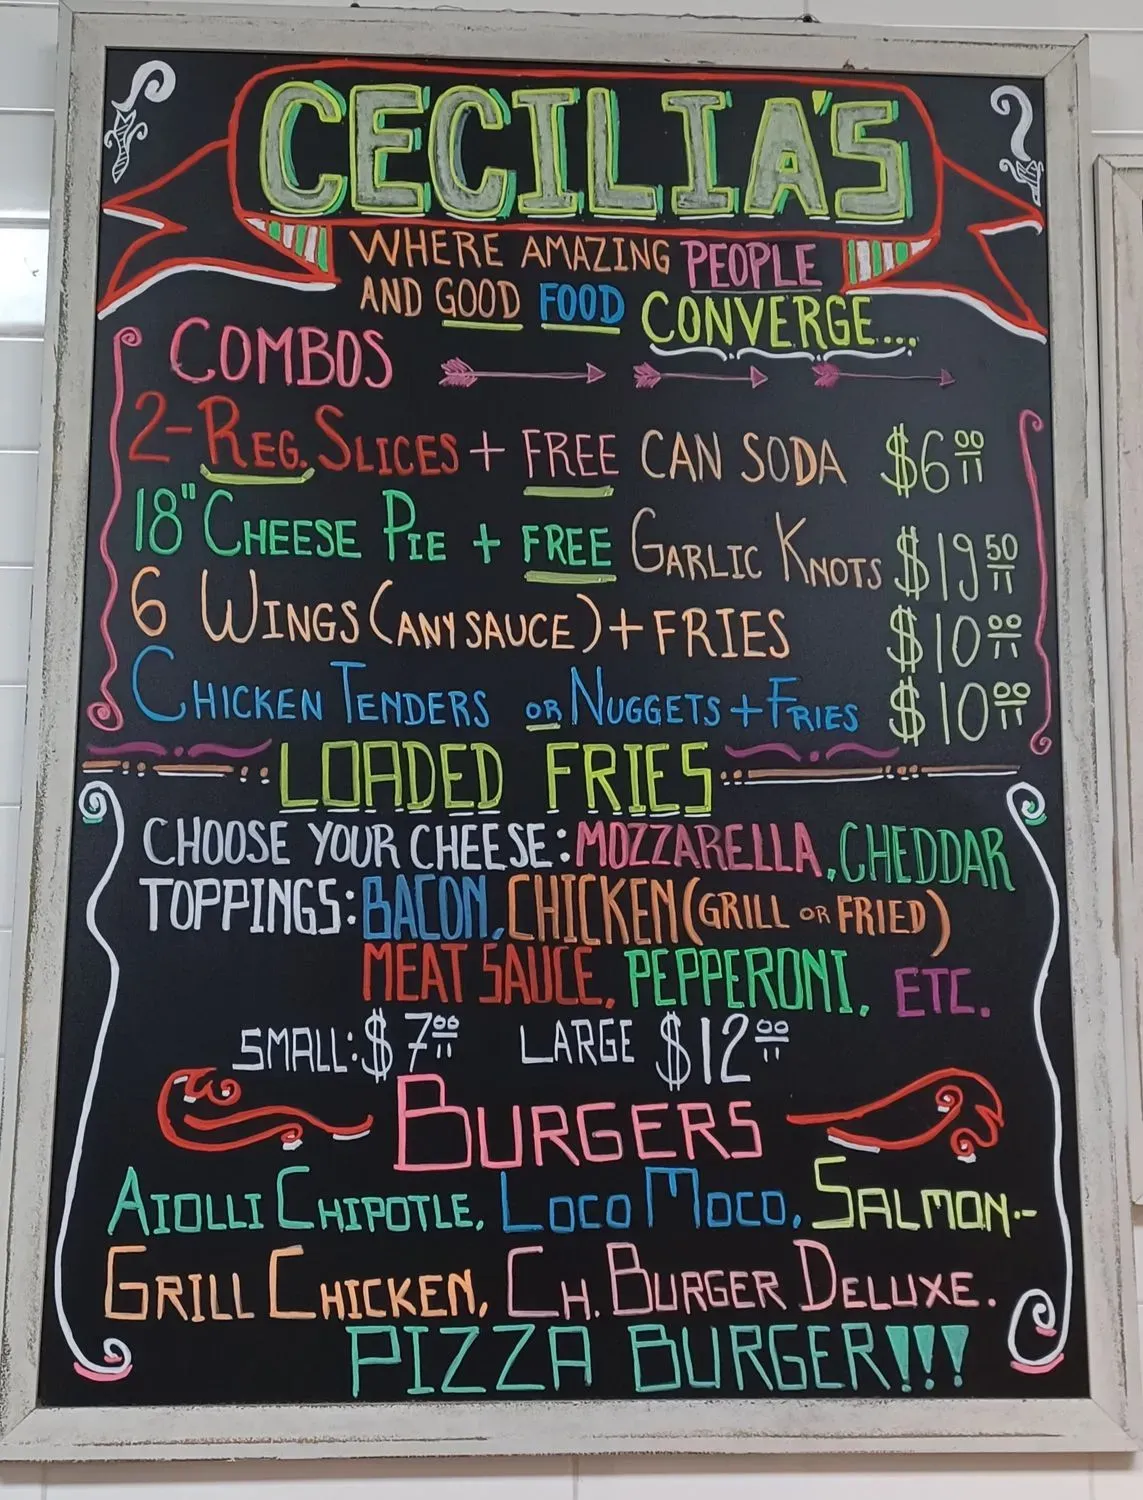 CECILIA'S
WHERE AMAZING PEOPLE
AND GOOD FOOD CONVERGE...
COMBOS
2-REG. SLICES + FREE CAN SODA $6.00
18" CHEESE PIE + FREE GARLIC KNOTS $19.50
6 WINGS (ANY SAUCE) + FRIES $10.00
CHICKEN TENDERS OR NUGGETS + FRIES $10.00
LOADED FRIES
CHOOSE YOUR CHEESE: MOZZARELLA, CHEDDAR
TOPPINGS: BACON, CHICKEN (GRILL OR FRIED)
MEAT SAUCE, PEPPERONI, ETC.
SMALL: $7.00 LARGE $12.00
BURGERS
AIOLLI CHIPOTLE, LOCO MOCO, SALMON.-
GRILL CHICKEN, CH. BURGER DELUXE.
PIZZA BURGER!!!